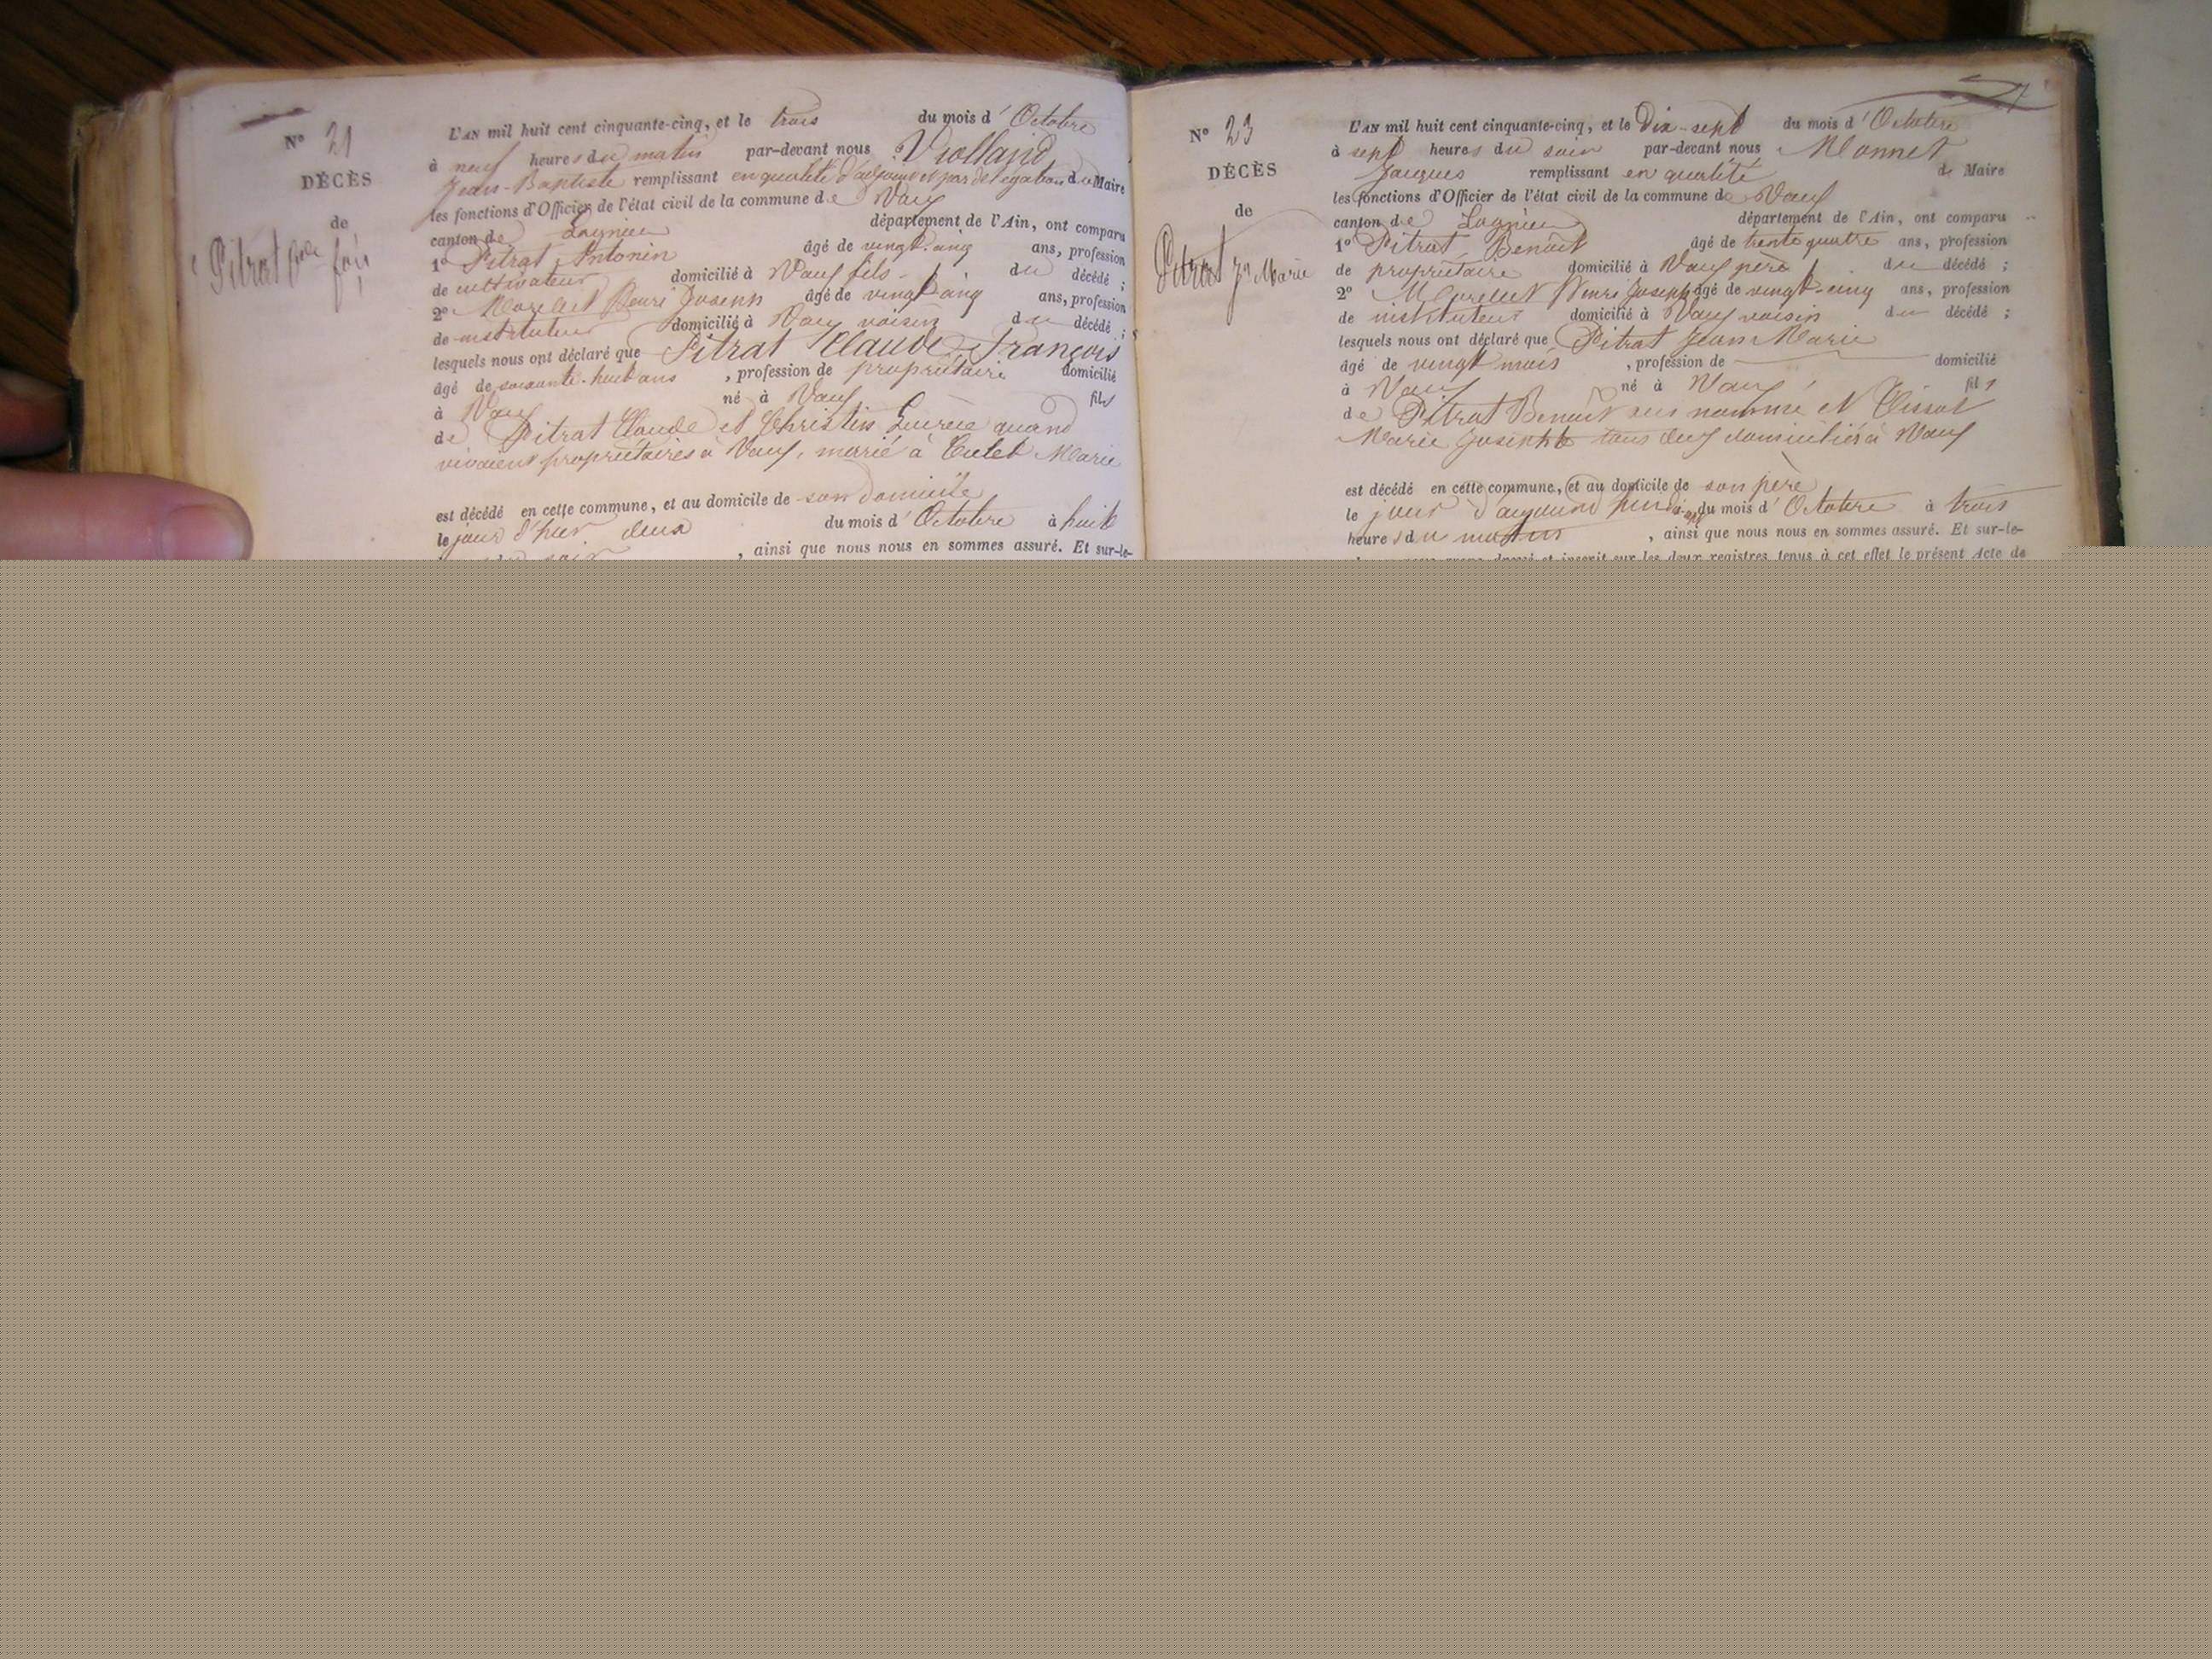 N° 21
DÉCÈS
de
Pitrat Cde fois
L'AN mil huit cent cinquante-cinq, et le trois du mois d'Octobre
à neuf heures du matin par-devant nous Violland
Jean-Baptiste remplissant en qualité d'adjoint et par délégation du Maire
les fonctions d'Officier de l'état civil de la commune de Vaux
canton de Lagnieu département de l'Ain, ont comparu
1° Pitrat Antonin âgé de vingt-cinq ans, profession
de cultivateur domicilié à Vaux fils du décédé ;
2° Morelet Henri Joseph âgé de vingt cinq ans, profession
de instituteur domicilié à Vaux voisin du décédé ;
lesquels nous ont déclaré que Pitrat Claude-François
âgé de soixante-huit ans , profession de propriétaire domicilié
à Vaux né à Vaux fils
de Pitrat Claude et Christin Lucrèce quand
vivaient propriétaires à Vaux, marié à Culet Marie
est décédé en cette commune, et au domicile de son domicile
le jour d'hier deux du mois d'Octobre à huit
du soir , ainsi que nous nous en sommes assuré. Et sur-le-
N° 23
DÉCÈS
de
Pitrat Jn Marie
L'AN mil huit cent cinquante-cinq, et le Dix-sept du mois d'Octobre
à sept heures du soir par-devant nous Monnet
Jacques remplissant en qualité de Maire
les fonctions d'Officier de l'état civil de la commune de Vaux
canton de Lagnieu département de l'Ain, ont comparu
1° Pitrat Benoît âgé de trente quatre ans, profession
de propriétaire domicilié à Vaux père du décédé ;
2° Morelet Henri Joseph âgé de vingt-cinq ans, profession
de instituteur domicilié à Vaux voisin du décédé ;
lesquels nous ont déclaré que Pitrat Jean Marie
âgé de vingt mois , profession de domicilié
à Vaux né à Vaux fils
de Pitrat Benoît sus nommé et Tissot
Marie Josephte tous deux domiciliés à Vaux
est décédé en cette commune, et au domicile de son père
le jour d'aujourd'hui dix-sept du mois d'Octobre à trois
heures du matin , ainsi que nous nous en sommes assuré. Et sur-le-
nous avons dressé et inscrit sur les deux registres tenus à cet effet le présent Acte de